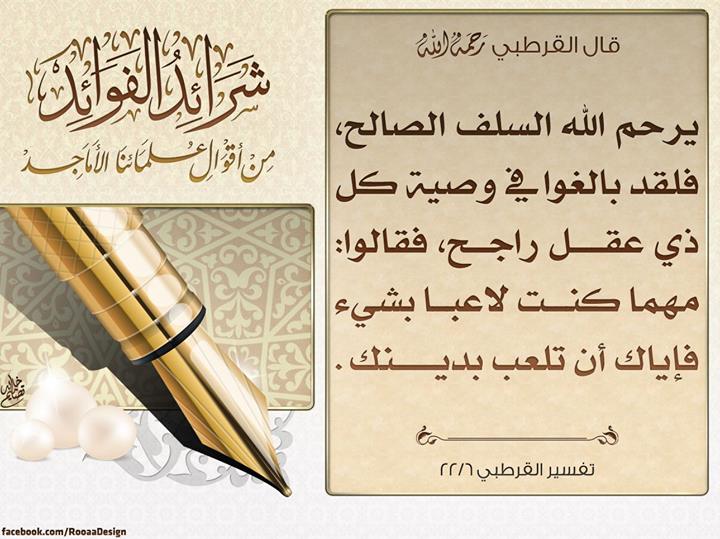 شَرَائِدُ الفَوَائِدْ
مِنْ أقْوَالِ عُلَمَائنَا الأمَاجِدْ
قال القرطبي رَحِمَهُ اللهُ
يرحم الله السلف الصالح،
فلقد بالغوا في وصية كل
ذي عقل راجح، فقالوا:
مهما كنت لاعبا بشيء
فإياك أن تلعب بدينك.
تفسير القرطبي ٢٢/٦
facebook.com/RooaaDesign